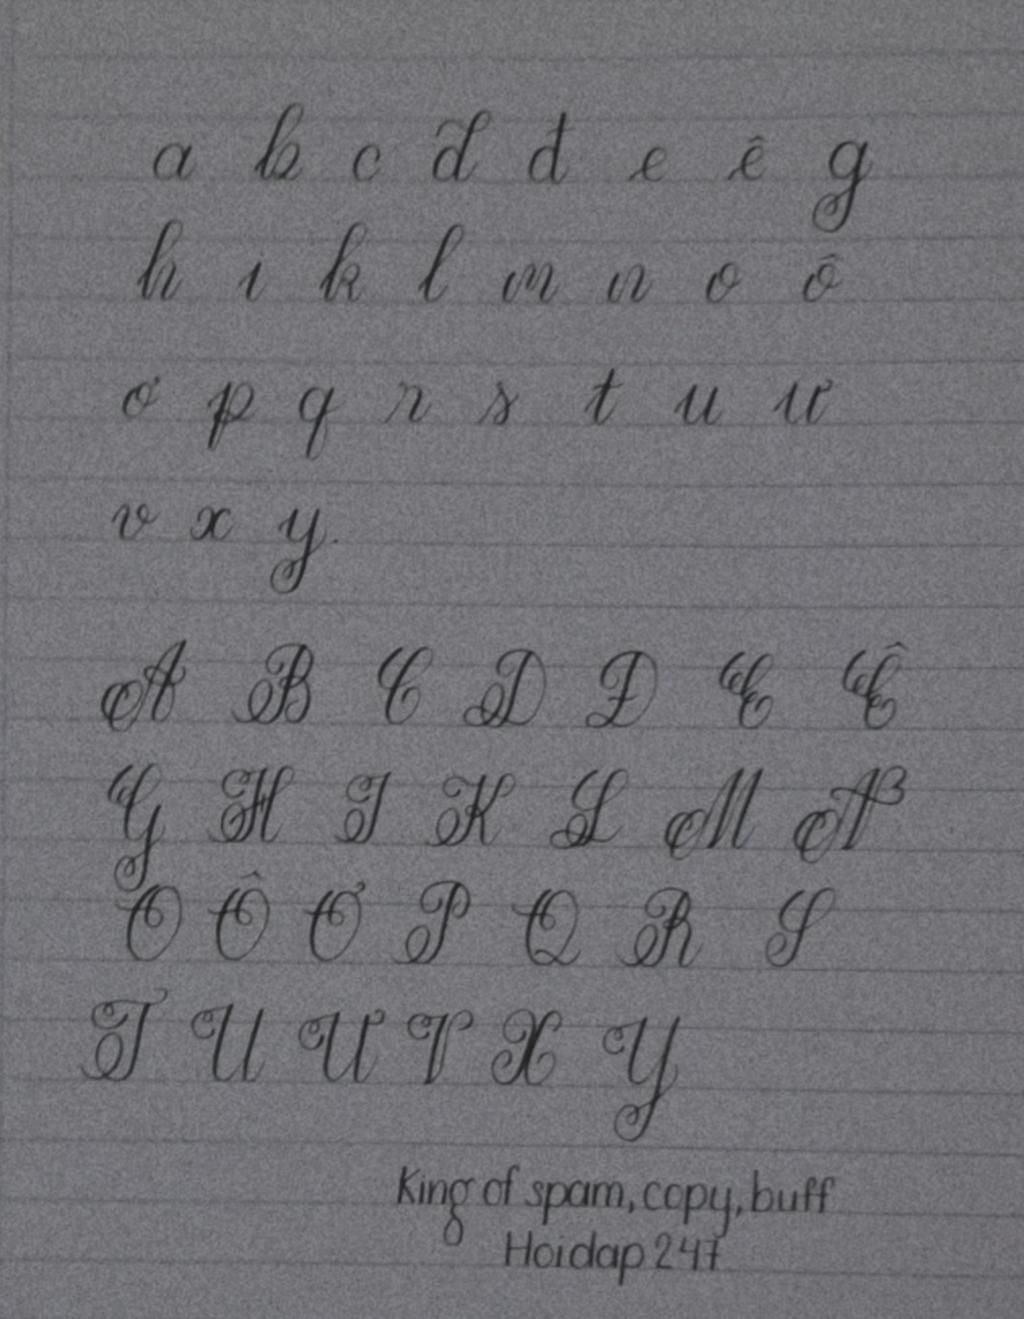 a b c d đ e ê g
h ı k l m n o ô
ơ p q r s t u ư
v x y.
A B C D Đ E Ê
G H I K L M N
O Ô Ơ P Q R S
T U Ư V X Y
King of spam, copy, buff
Hoidap 247